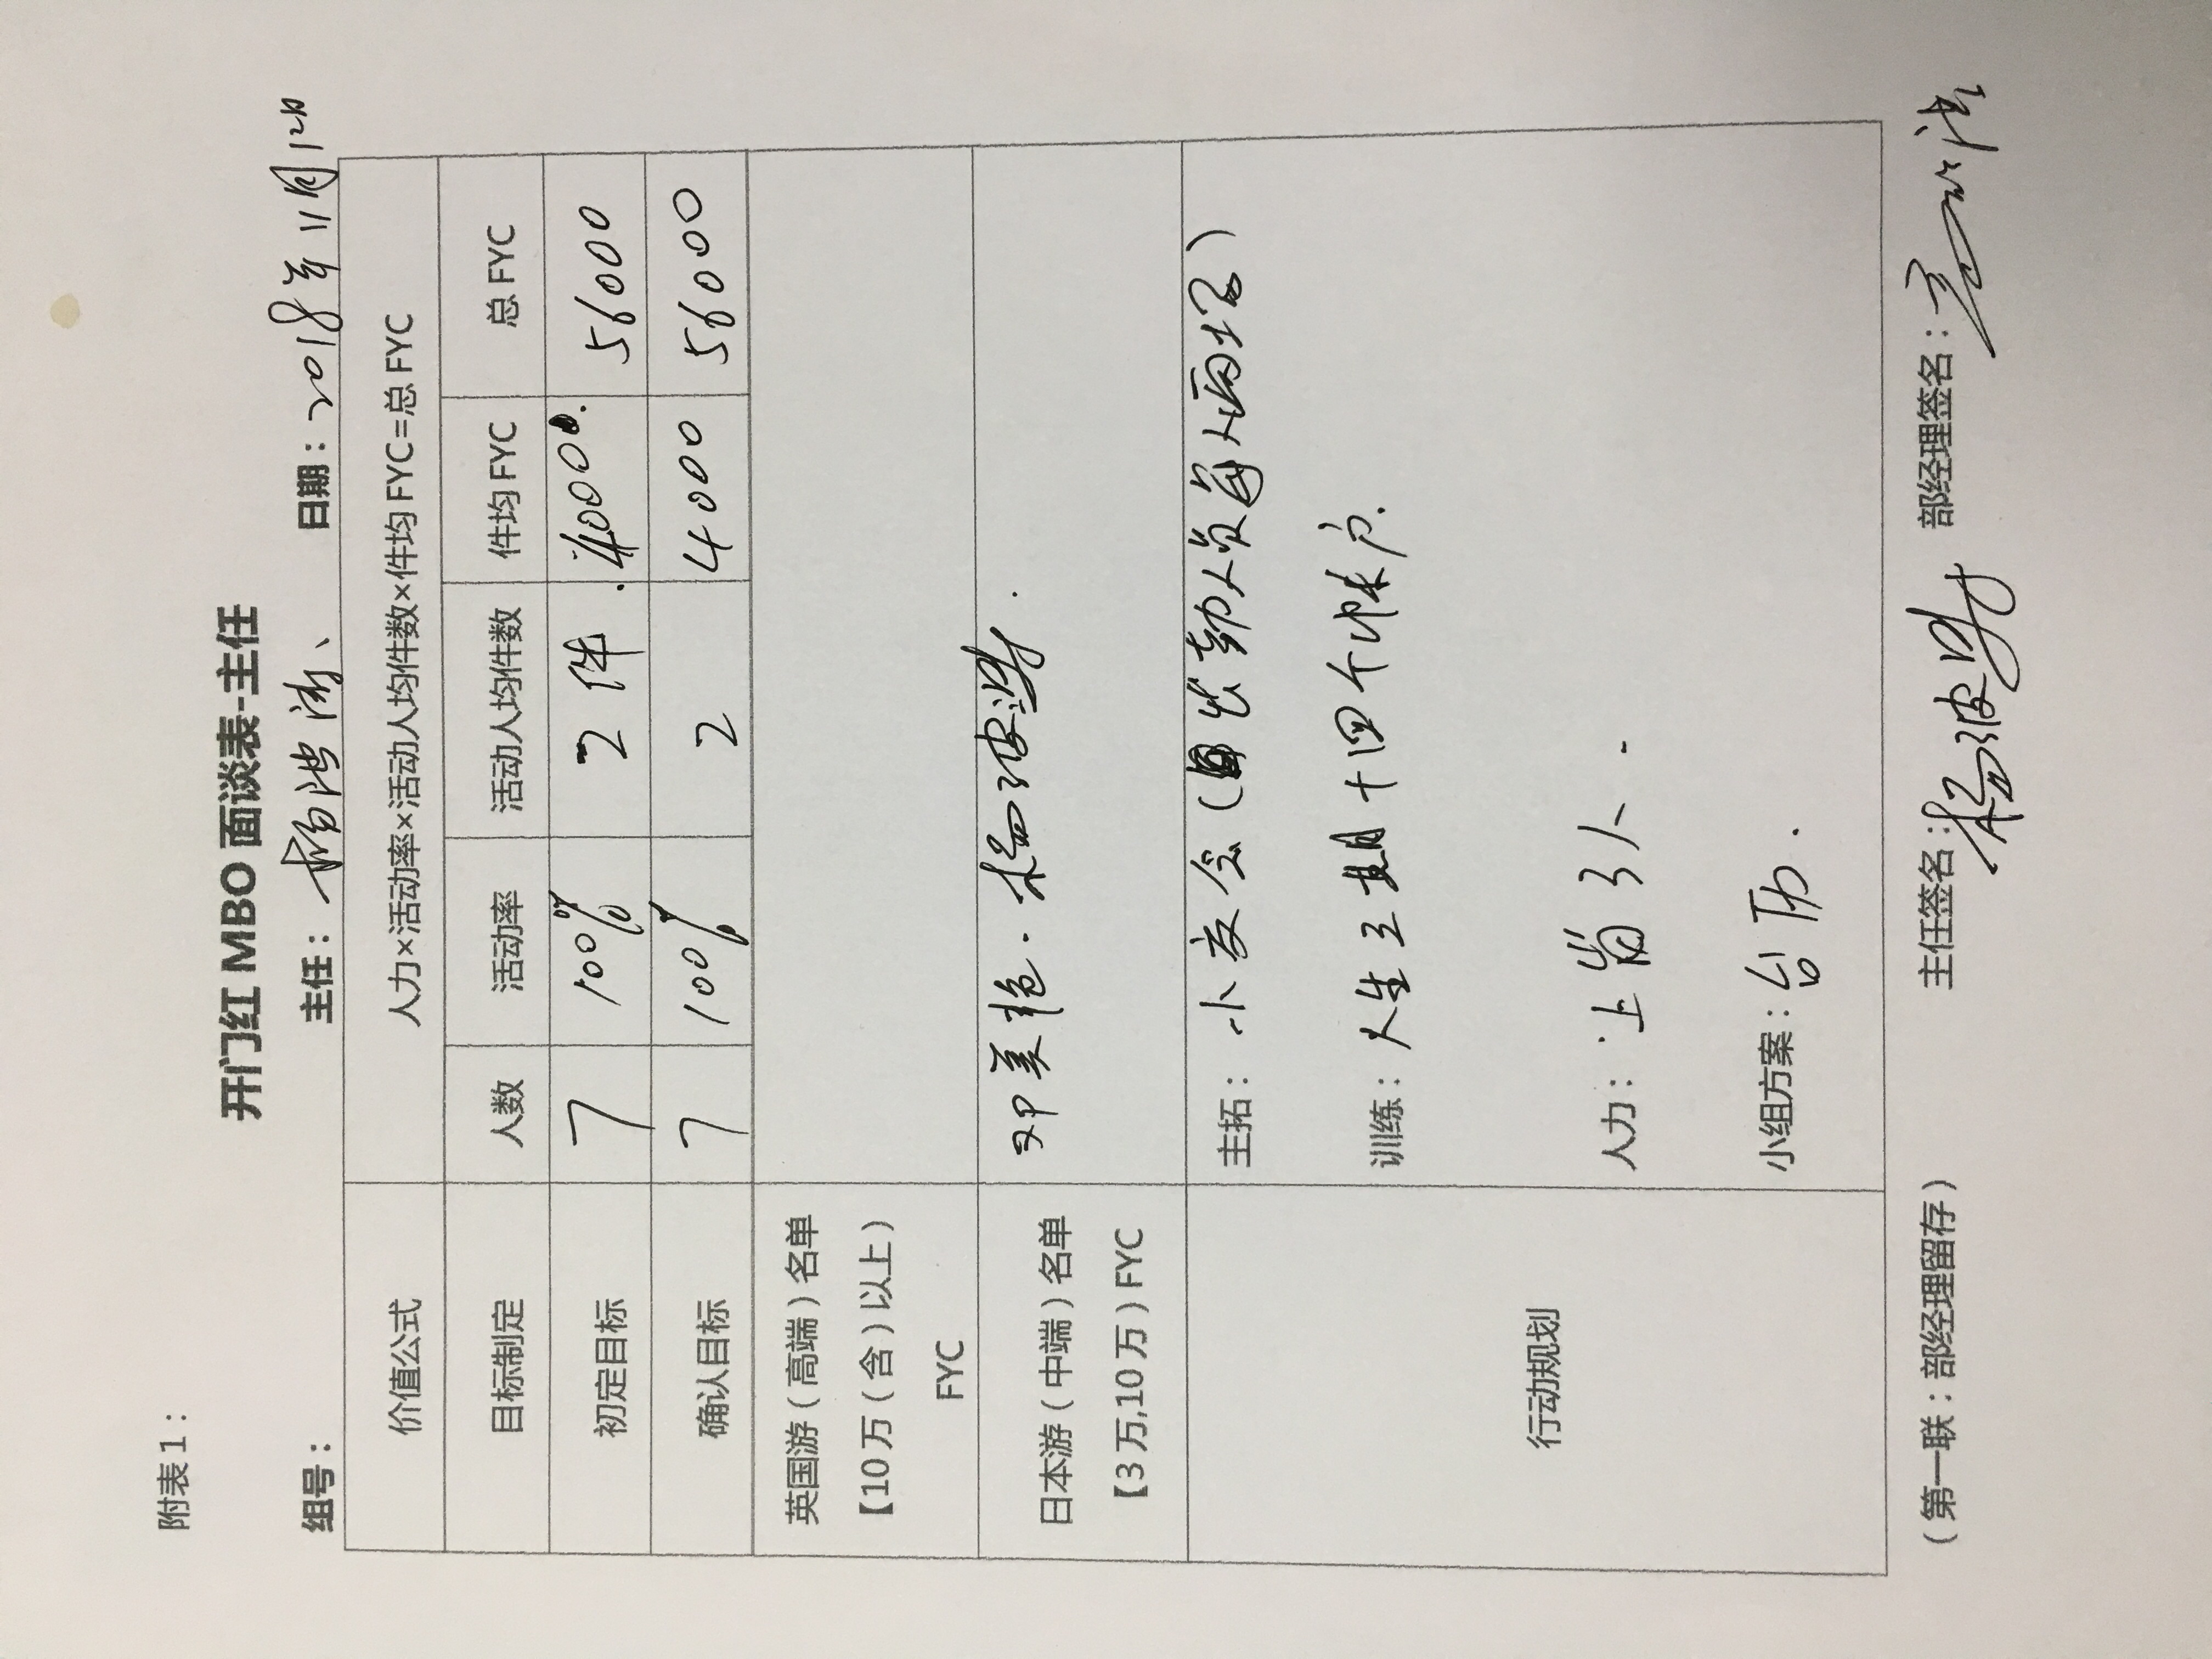 附表1：
开门红 MBO 面谈表-主任
组号： 主任： 杨 日期：2018年11月12日
价值公式 人力×活动率×活动人均件数×件均 FYC=总 FYC
目标制定 人数 活动率 活动人均件数 件均 FYC 总 FYC
初定目标 7 100% 2件 4000 56000
确认目标 7 100% 2 4000 56000
英国游（高端）名单
【10万（含）以上）
FYC
日本游（中端）名单
【3万,10万）FYC
邓美艳. 杨波
行动规划
主拓： 小交会（出勤人员每人两场）
训练： 人生三期十四个帐户.
人力： 上岗3人.
小组方案： 台历.
（第一联：部经理留存） 主任签名： 杨波 部经理签名：